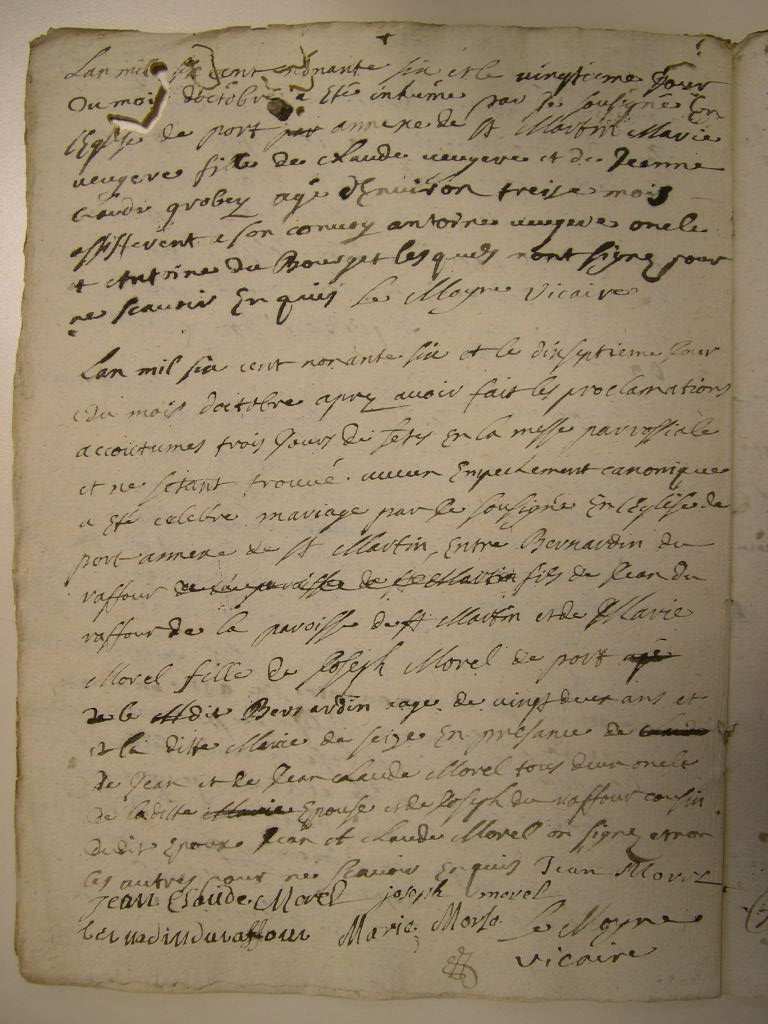 Lan mil six cent nonante six et le vingtieme Jour
Du mois doctobre a Eté inhumé par le sousigné En
lEglise de port annexe de St Martin Marie
veugere fille de claude veugere et de Jeanne
claude grobey agé dEnviron treise mois
assisterent a son convoy antoine veugere oncle
et Antoine Du Bourget lesquels nont signez pour
ne scauoir Enquis Le Moyne Vicaire
Lan mil six cent nonante six et le dixseptieme Jour
Du mois doctobre aprez auoir fait les proclamations
accoutumes trois Jours de fetes En la messe parrossiale
et ne setant trouué aucun Enpechement canonique
a Eté celebré mariage par le sousigné En lEglise de
port annexe de St Martin, Entre Bernardin du
raffour de la paroisse de St Martin fils de Jean du
raffour de la paroisse de St Martin et de Marie
Morel fille de Joseph Morel de port agé
de le dit Bernardin age de vingt deux ans et
et la ditte Marie de seize En presance de
de Jean et de Jean claude Morel tous deux oncle
de laditte Marie Epouse et de Joseph du raffour cousin
dudit Epoux Jean et claude Morel on signez et non
les autres pour ne scauoir Enquis Jean Morel
Jean Claude Morel joseph morel
bernadin duraffour Marie Morel Le Moyne
vicaire